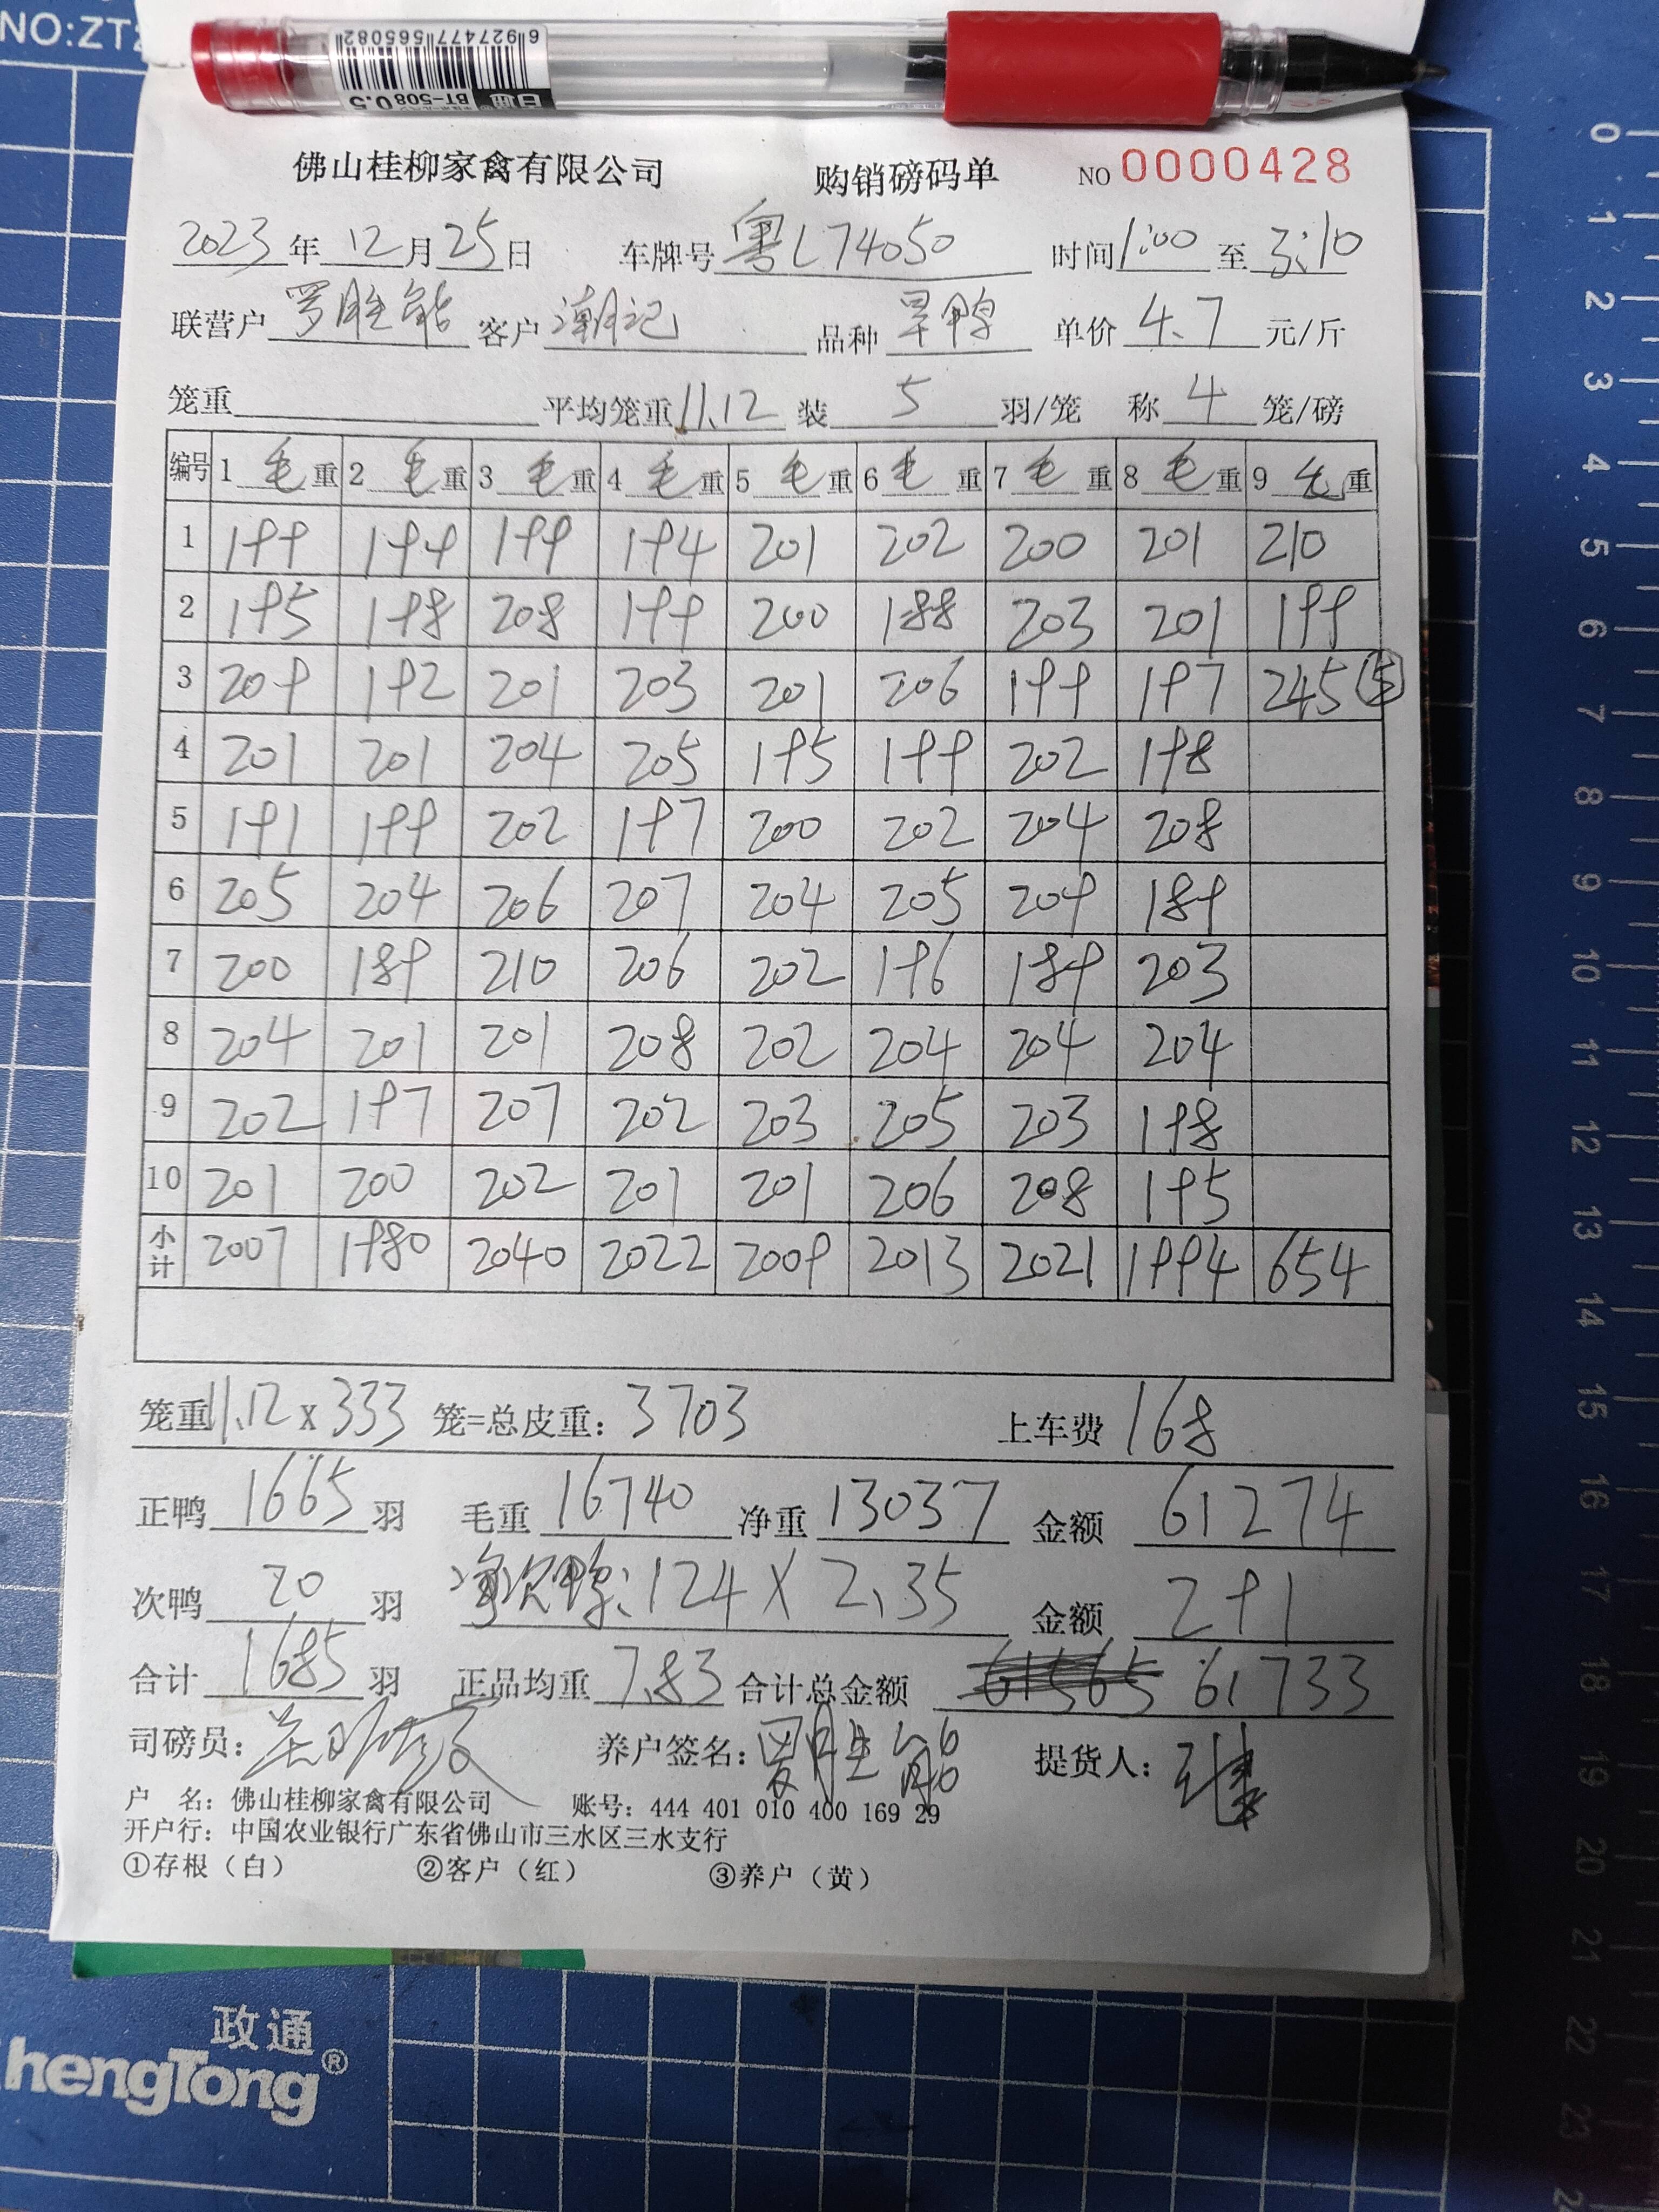 NO:ZT
6927477565082
BT-508 0.5
佛山桂柳家禽有限公司 购销磅码单 NO 0000428
2023年12月25日 车牌号 粤L74050 时间 1:00 至 3:10
联营户 罗胜能 客户 潮记 品种 旱鸭 单价 4.7 元/斤
笼重 平均笼重 11.12 装 5 羽/笼 称 4 笼/磅
编号 1 毛重 2 毛重 3 毛重 4 毛重 5 毛重 6 毛重 7 毛重 8 毛重 9 毛重
1 199 199 199 194 201 202 200 201 210
2 195 198 208 199 200 188 203 201 199
3 209 192 201 203 201 206 199 197 245 ⑤
4 201 201 204 205 195 199 202 198
5 191 199 202 197 200 202 204 208
6 205 204 206 207 204 205 209 189
7 200 189 210 206 202 196 189 203
8 204 201 201 208 202 204 204 204
9 202 197 207 202 203 205 203 198
10 201 200 202 201 201 206 208 195
小计 2007 1980 2040 2022 2009 2013 2021 1994 654
笼重 11.12 x 333 笼=总皮重: 3703 上车费 168
正鸭 1665 羽 毛重 16740 净重 13037 金额 61274
次鸭 20 羽 净次鸭: 124 X 2.35 金额 291
合计 1685 羽 正品均重 7.83 合计总金额 61565 61733
司磅员: 养户签名: 罗胜能 提货人:
户 名: 佛山桂柳家禽有限公司 账号: 444 401 010 400 169 29
开户行: 中国农业银行广东省佛山市三水区三水支行
①存根(白) ②客户(红) ③养户(黄)
政通
hengTong®
0
1
2
3
4
5
6
7
8
9
10
11
12
13
14
15
16
17
18
19
20
21
22
23